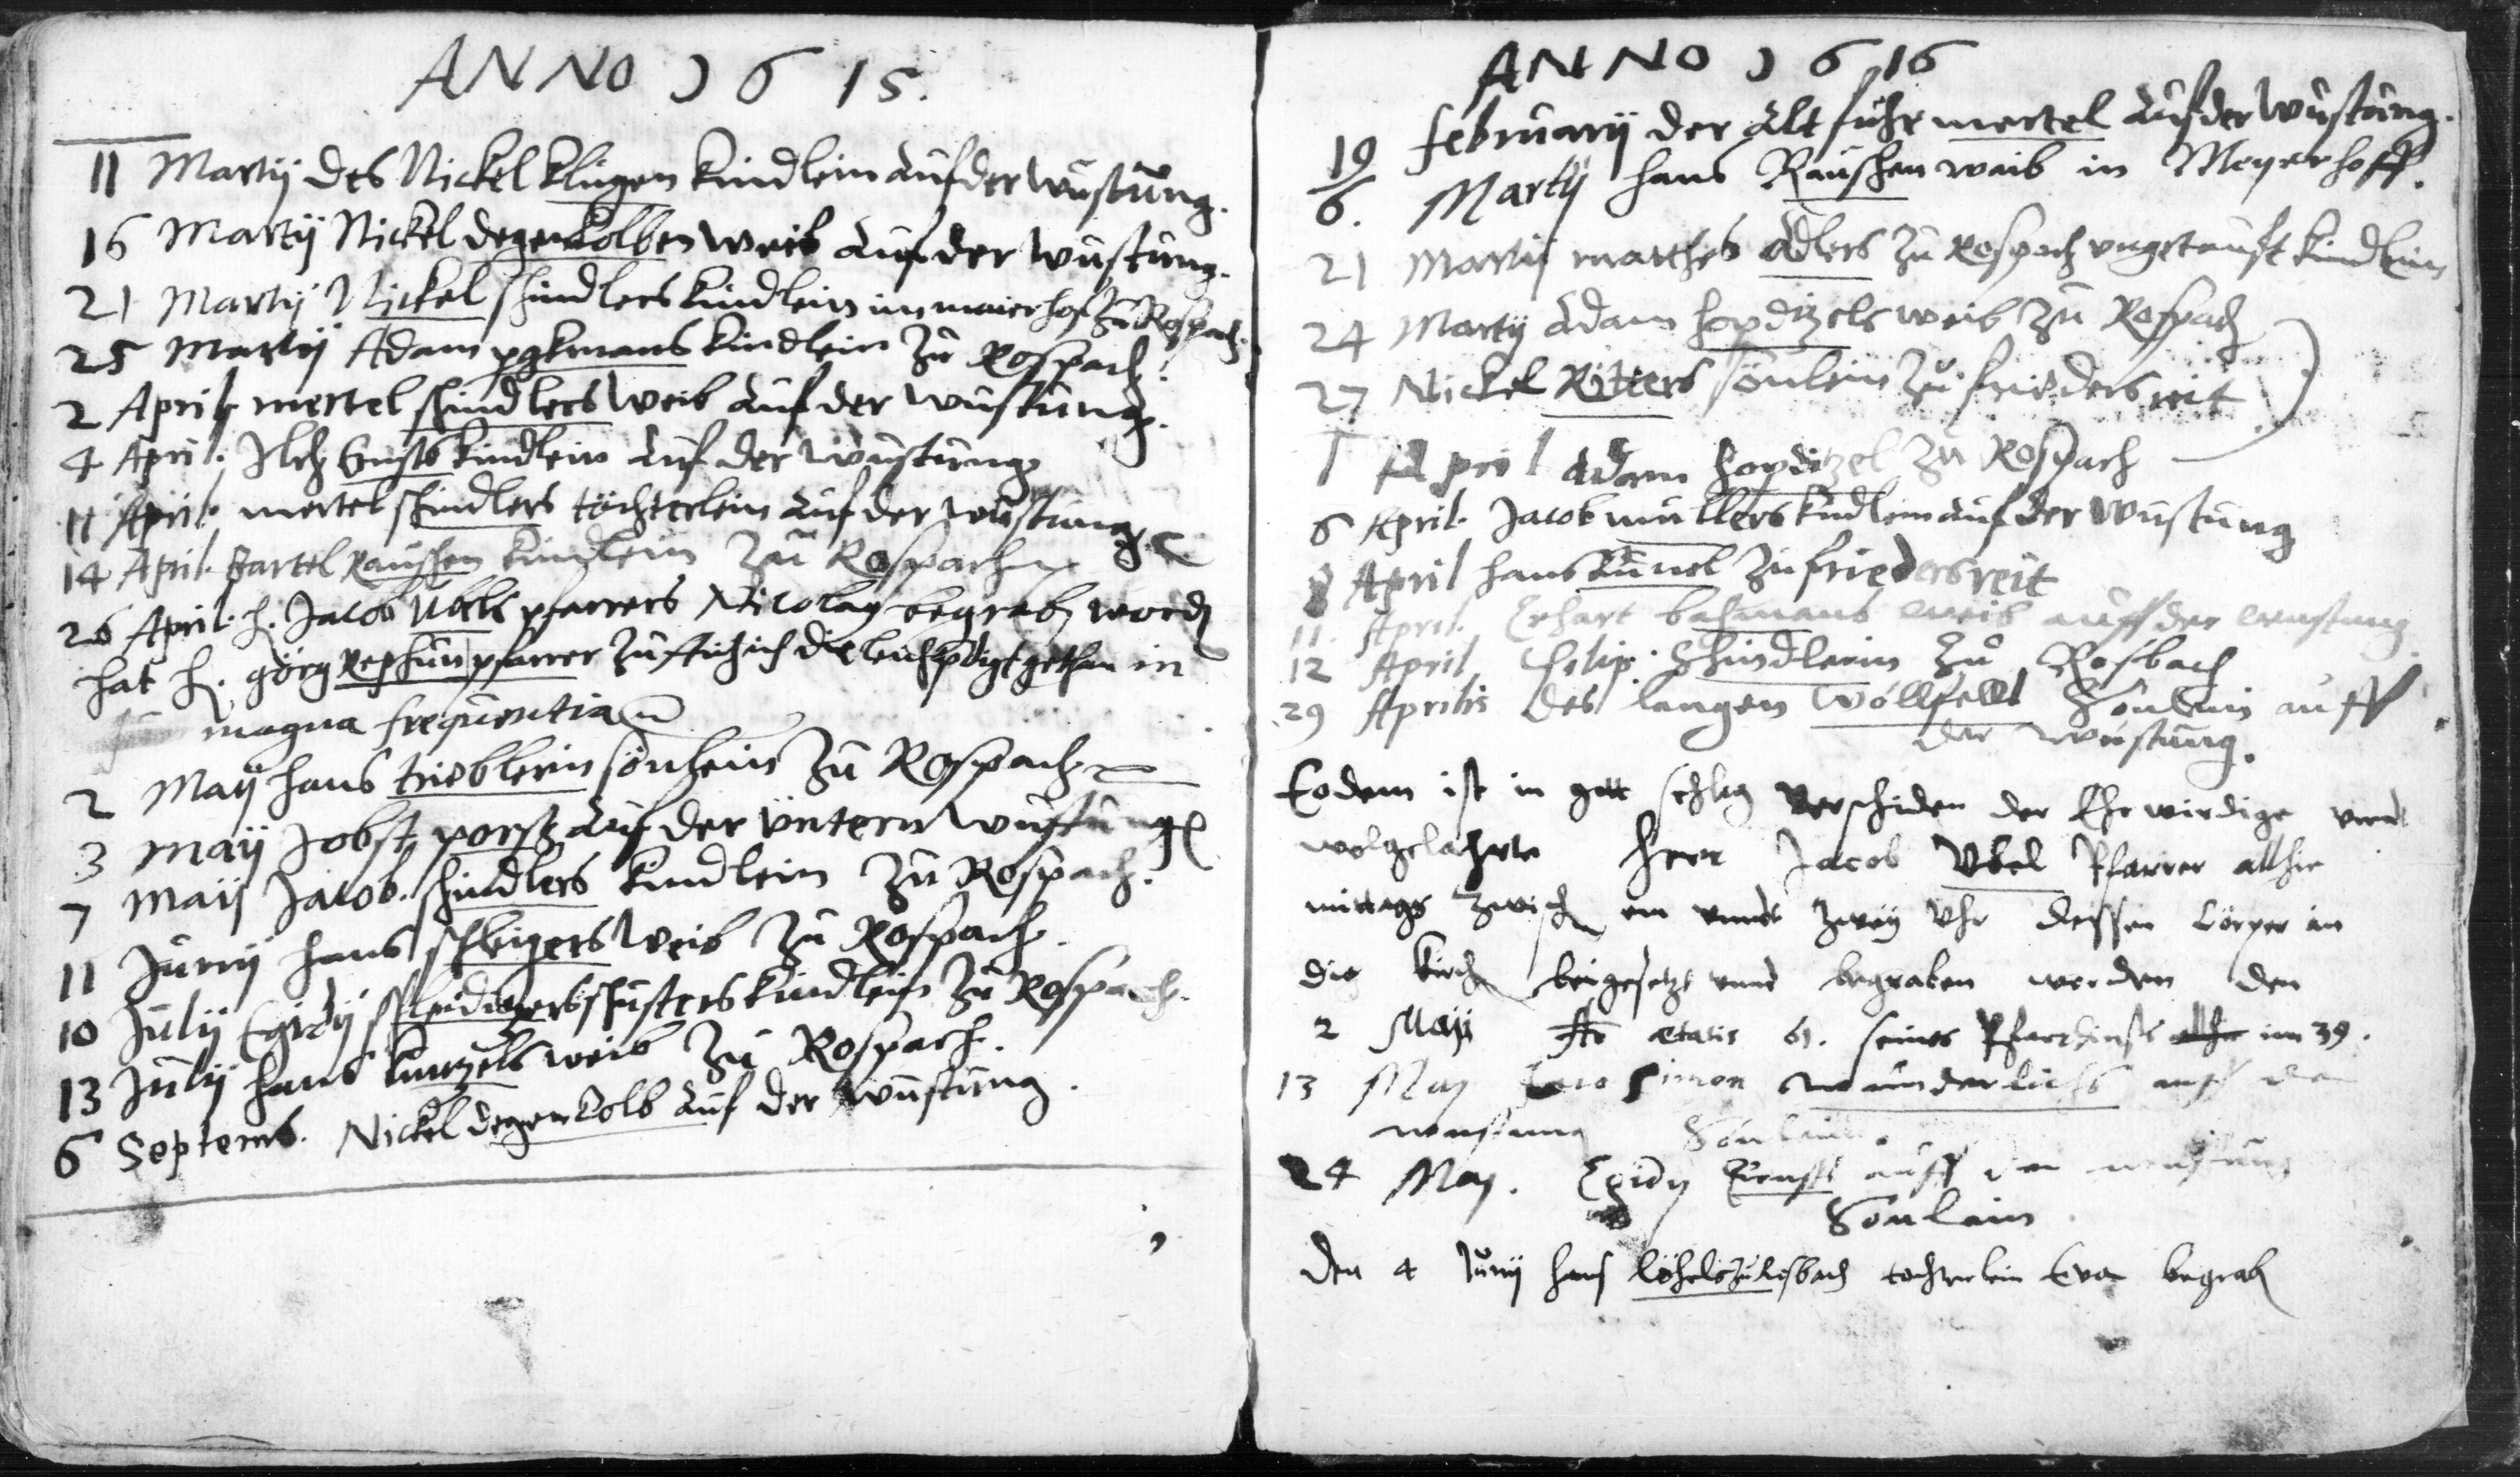 ANNO 1615.
11 Martij des Nickel klugen kindlein auf der wustung.
16 Martij Nickel degenkolben weib auf der wustung.
21 Martij Nickel shindlers kindlein im maierhof zu Rospach.
25 Martij Adam kindlein zu Rospach.
2 April mertel shindlers weib auf der wustung.
4 April. kindlein auf der wustung
11 April. mertel shindlers töchterlein auf der wustung
14 April. Bartel Raushen kindlein zu Rospach
26 April. h. Jacob Ubels pfarrers Nicolay begrab word
hat h. görg Rephun pfarrer zu die leichpdigt gethan in
magna frequentia
2 Maij hans trieblein sönlein zu Rospach
3 Maij Jobst porst auf der untern wustung
7 Maij Jacob. shindlers kindlein zu Rospach.
11 Junij hans weib zu Rospach.
10 Julij Egidij shusters kindlein zu Rospach.
13 Julij hans kunzels weib zu Rospach.
6 Septemb. Nickel degenkolb auf der wustung.
ANNO 1616
19 februarij der alt mertel auf der wustung.
6. Martij hans Raushen weib in Meyerhoff.
21 Martij matthes adlers zu Rospach ungetauft kindlein
24 Martij adam hopditzels weib zu Rospach
27 Nickel Ritters sönlein zu friedersreit
1 April adam hopditzel zu Rospach
6 April. Jacob mullers kindlein auf der wustung
8 April hans kunel zu friedersreit
11. April. Erhart weib auff der wustung
12 April filip. Shindlerin zu Rosbach
29 Aprilis des langen Wollfells Sönlein auff
der wustung.
Eodem ist in gott sehlig verschiden der Ehrwirdige unnd
wolgelahrte Herr Jacob Ubel Pfarrer allhie
mittags zwischen ein unndt zwey Uhr dessen Cörper in
die Kirch beigesetzt unnd begraben worden den
2 Maji Ao ætatis 61. seines Pfardiensts allhie im 39.
13 May Simon wunderlichs auff der
wustung Sönlein.
24 May. Egidy Ernst auff der wustung
Sönlein
Den 4 Junij hans löhels zu rosbach tochterlein Eva begrab